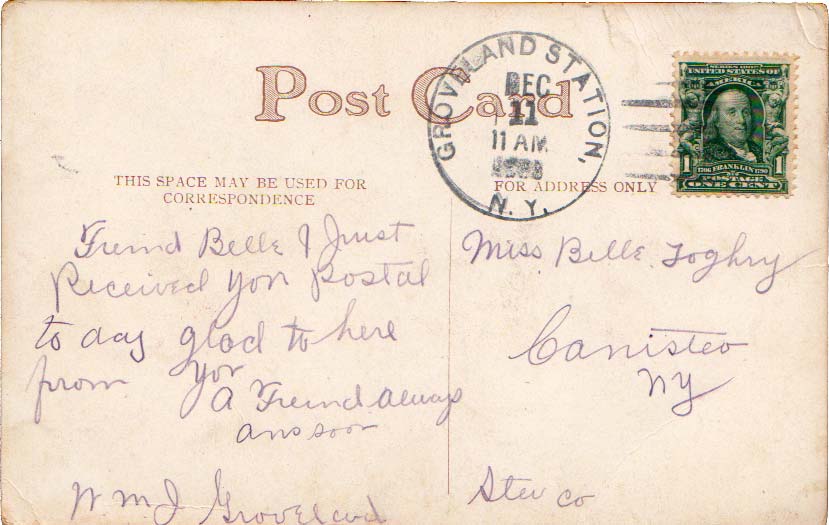 Post Card
THIS SPACE MAY BE USED FOR
CORRESPONDENCE
FOR ADDRESS ONLY
GROVELAND STATION,
N. Y.
DEC
11
11 AM
UNITED STATES OF
AMERICA
1706 FRANKLIN 1790
1 1
POSTAGE
ONE CENT
Freind Belle I Just
Received your Postal
to day glad to here
from yor
A Freind always
ans soon
W m J Groveland
Miss Belle
Canisteo
NY
Steu co